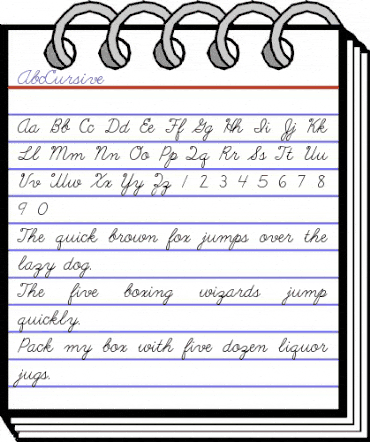 AbcCursive
Aa Bb Cc Dd Ee Ff Gg Hh Ii Jj Kk
Ll Mm Nn Oo Pp Qq Rr Ss Tt Uu
Vv Ww Xx Yy Zz 1 2 3 4 5 6 7 8
9 0
The quick brown fox jumps over the
lazy dog.
The five boxing wizards jump
quickly.
Pack my box with five dozen liquor
jugs.